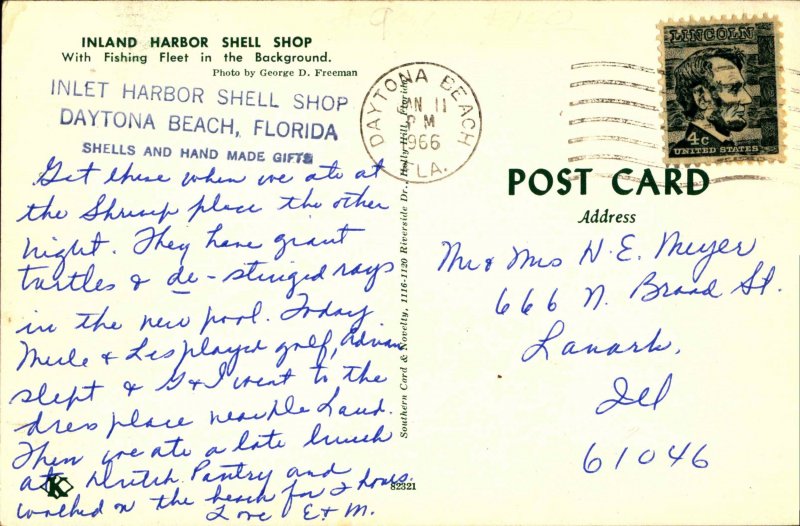 INLAND HARBOR SHELL SHOP
With Fishing Fleet in the Background.
Photo by George D. Freeman
INLET HARBOR SHELL SHOP
DAYTONA BEACH, FLORIDA
SHELLS AND HAND MADE GIFTS
Get these when we ate at
the Shrimp place the other
night. They have giant
turtles & de-stinged rays
in the new pool. Today
Merle & Les played golf, Adrian
slept & G & I went to the
dress place near De Land.
Then we ate a late lunch
at Dutch Pantry and
walked on the beach for 2 hours.
Love E & M.
K
82321
Southern Card & Novelty, 1116-1120 Riverside Dr., Holly Hill, Florida
DAYTONA BEACH
JAN 11
PM
1966
FLA.
LINCOLN
4c
UNITED STATES
POST CARD
Address
Mr & Mrs H. E. Meyer
666 N. Broad St.
Lanark,
Ill
61046